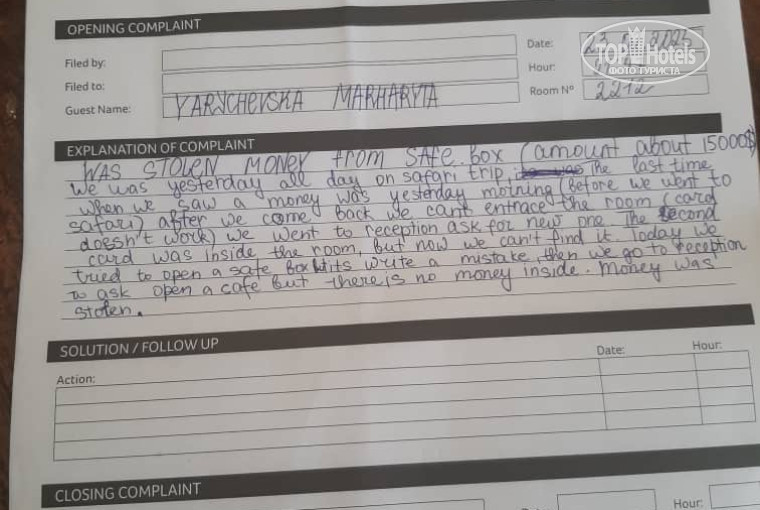 OPENING COMPLAINT
Filed by:
Date: 23 2023
Filed to:
Hour:
Guest Name: YARYCHEVSKA MARHARYTA
Room Nº 2212
TOP Hotels
ФОТО ТУРИСТА
EXPLANATION OF COMPLAINT
WAS STOLEN MONEY from SAFE BOX (amount about 15000$)
We was yesterday all day on safari trip, The last time
when we saw a money was yesterday morning (before we went to
safari) after we come back we can't entrace the room (card
doessn't work) we went to reception ask for new one. The second
card was inside the room, but now we can't find it. Today we
tried to open a safe box its write a mistake, then we go to reception
to ask open a cafe but there is no money inside. Money was
stolen.
SOLUTION / FOLLOW UP
Action:
Date:
Hour:
CLOSING COMPLAINT
Hour: